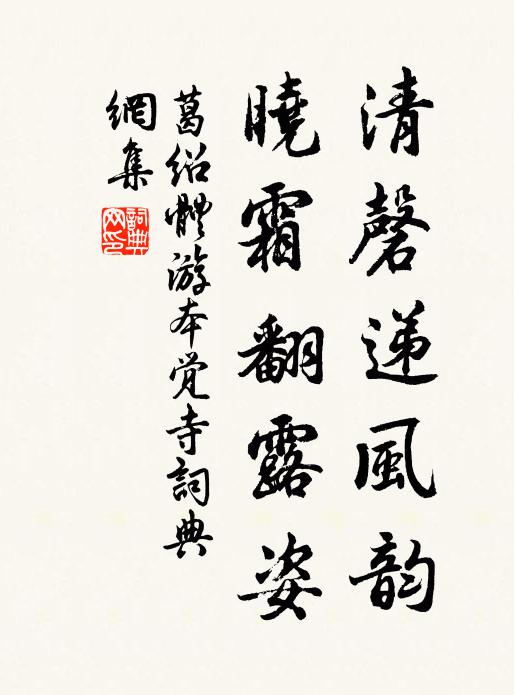 清磬递風韵
曉霜翻露姿
葛绍體游本覺寺詞典
網集
詞典
网印